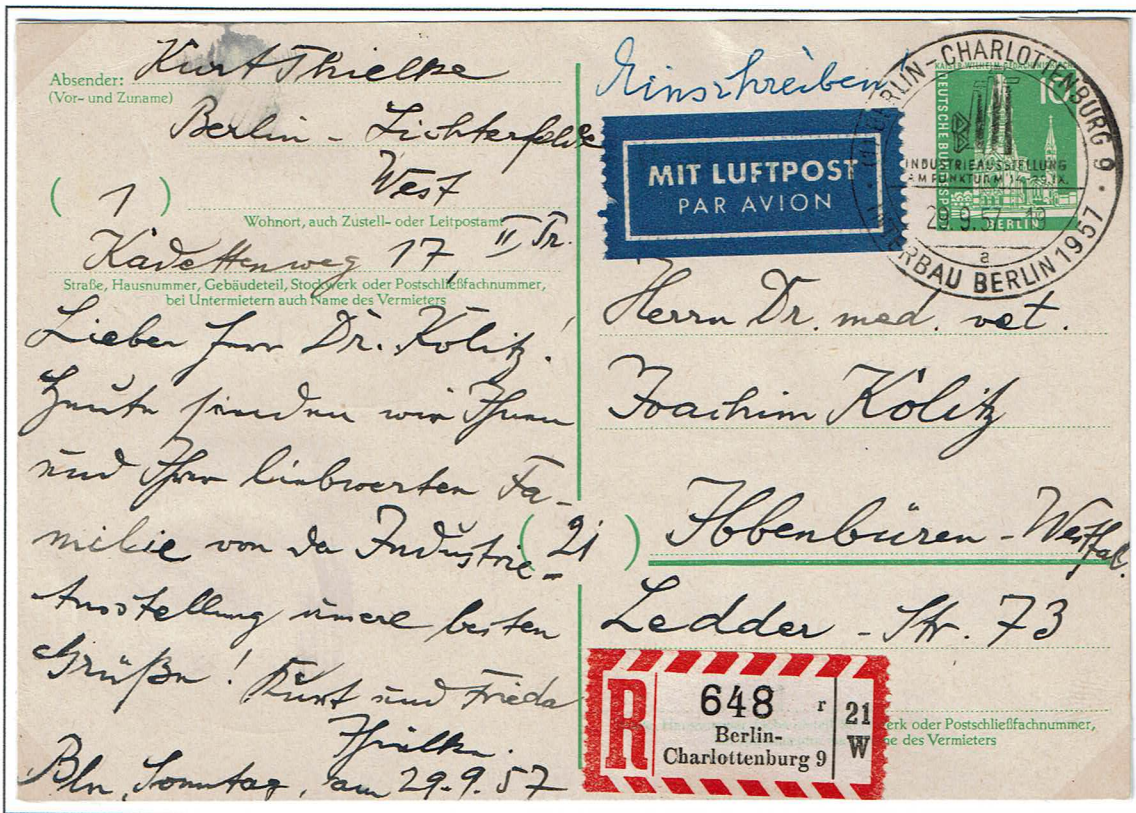 Absender: Kurt Thielke
(Vor- und Zuname)
Berlin - Lichterfelde
West
(1)
Wohnort, auch Zustell- oder Leitpostamt
Kadettenweg 17, II Tr.
Straße, Hausnummer, Gebäudeteil, Stockwerk oder Postschließfachnummer,
bei Untermietern auch Name des Vermieters
Lieber Herr Dr. Kolitz!
Heute senden wir Ihnen
und Ihrer liebwerten Fa-
milie von da Industrie-
Ausstellung unsere besten
Grüße! Kurt und Frieda
Thielke.
Bln, Sonntag, am 29.9.57
Einschreiben!
MIT LUFTPOST
PAR AVION
BERLIN-CHARLOTTENBURG 9
INDUSTRIEAUSSTELLUNG
AM FUNKTURM
29.9.57
a
INTERBAU BERLIN 1957
KAISER-WILHELM-GEDÄCHTNISKIRCHE
10
DEUTSCHE BUNDESP
BERLIN
Herrn Dr. med. vet.
Joachim Kolitz
(21) Ibbenbüren - Westfal.
Ledder - Str. 73
R
648 r
Berlin-
Charlottenburg 9
21
W
erk oder Postschließfachnummer,
e des Vermieters